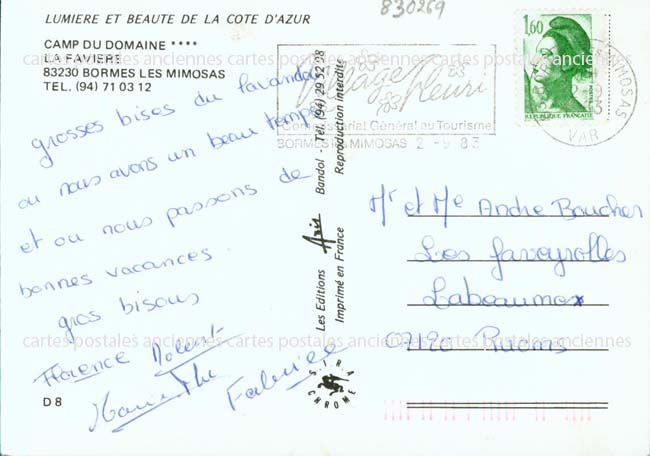 830269
LUMIERE ET BEAUTE DE LA COTE D'AZUR
CAMP DU DOMAINE ****
LA FAVIERE
83230 BORMES LES MIMOSAS
TEL. (94) 71 03 12
grosses bises du Lavandou
ou nous avons un beau temps
et ou nous passons de
bonnes vacances.
gros bisous
Florence
Fabrice
D 8
Les Editions Aris Bandol - Tél. (94) 29 52 98
Imprimé en France Reproduction interdite
S.P.R.A.
CHROME
Village
Fleuri
Commissariat Général au Tourisme
BORMES LES MIMOSAS 2 - 9 83
1,60
REPUBLIQUE FRANCAISE
MIMOSAS
VAR
Mr et Me Andre Boucher
Les faveyrolles
Labeaume
07120 Ruoms
cartes postales anciennes cartes postales anciennes cartes postales anciennes
cartes postales anciennes cartes postales anciennes cartes postales anciennes